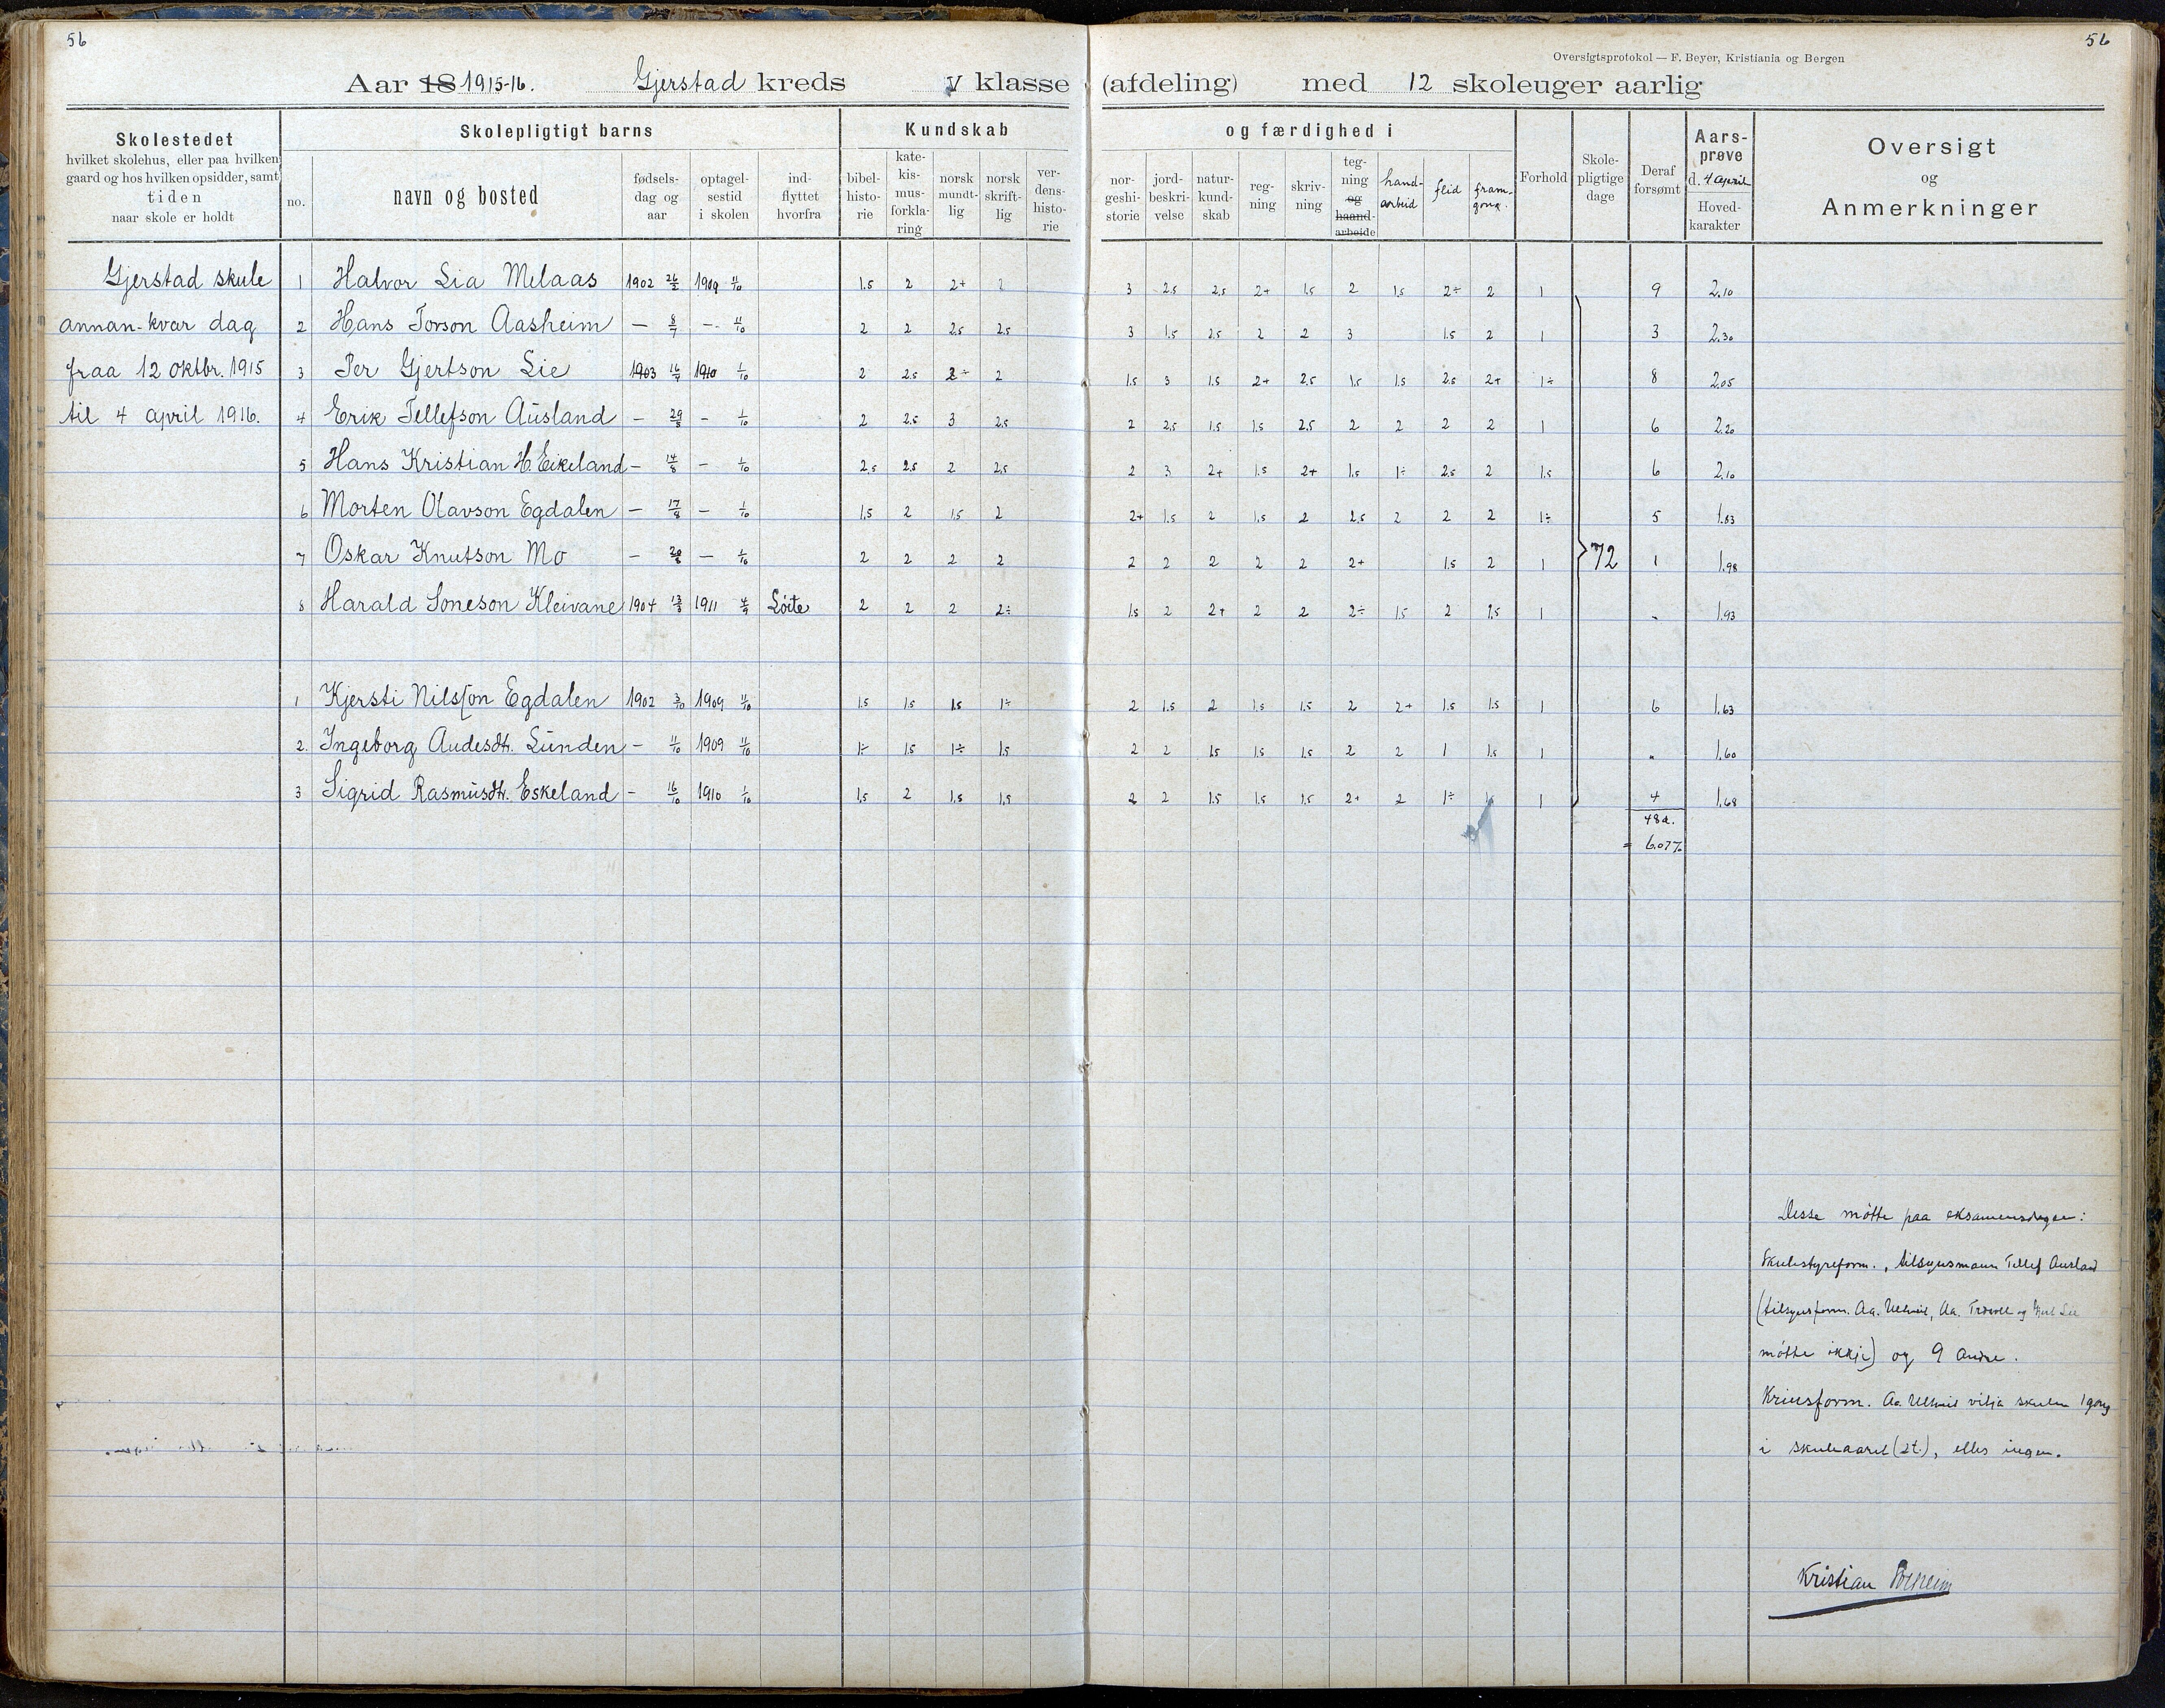 56
56
Oversigtsprotokol — F. Beyer, Kristiania og Bergen
Aar 18 1915-16. Gjerstad kreds V klasse (afdeling) med 12 skoleuger aarlig
Skolestedet
hvilket skolehus, eller paa hvilken
gaard og hos hvilken opsidder, samt
tiden
naar skole er holdt
Skolepligtigt barns
no.
navn og bosted
fødsels-
dag og
aar
optagel-
sestid
i skolen
ind-
flyttet
hvorfra
Kundskab
bibel-
histo-
rie
kate-
kis-
mus-
forkla-
ring
norsk
mundt-
lig
norsk
skrift-
lig
ver-
dens-
histo-
rie
og færdighed i
nor-
geshi-
storie
jord-
beskri-
velse
natur-
kund-
skab
reg-
ning
skriv-
ning
teg-
ning
og
haand-
arbeide
hand-
arbeid
flid
fram-
gong.
Forhold
Skole-
pligtige
dage
Deraf
forsømt
Aars-
prøve
d. 4 april
Hoved-
karakter
Oversigt
og
Anmerkninger
Gjerstad skule 1 Halvor Lia Melaas 1902 26/2 1909 11/10 1.5 2 2+ 2 3 2.5 2.5 2+ 1.5 2 1.5 2÷ 2 1 9 2.10
annan-kvar dag 2 Hans Torson Aasheim — 8/7 — 11/10 2 2 2.5 2.5 3 1.5 2.5 2 2 3 1.5 2 1 3 2.30
fraa 12 oktbr. 1915 3 Per Gjertson Lie 1903 16/7 1910 1/10 2 2.5 2÷ 2 1.5 3 1.5 2+ 2.5 1.5 1.5 2.5 2+ 1÷ 8 2.05
til 4 april 1916. 4 Erik Tellefson Ausland — 29/8 — 1/10 2 2.5 3 2.5 2 2.5 1.5 1.5 2.5 2 2 2 2 1 6 2.20
5 Hans Kristian H. Eikeland — 14/8 — 1/10 2.5 2.5 2 2.5 2 3 2+ 1.5 2+ 1.5 1÷ 2.5 2 1.5 6 2.10
6 Morten Olavson Egdalen — 17/8 — 1/10 1.5 2 1.5 2 2+ 1.5 2 1.5 2 2.5 2 2 2 1÷ 5 1.83
7 Oskar Knutson Mo — 20/8 — 1/10 2 2 2 2 2 2 2 2 2 2+ 1.5 2 1 72 1 1.98
8 Harald Soneson Kleivane 1904 13/8 1911 4/9 Löite 2 2 2 2÷ 1.5 2 2+ 2 2 2÷ 1.5 2 1.5 1 - 1.93
1 Kjersti Nilsson Egdalen 1902 3/10 1909 11/10 1.5 1.5 1.5 1÷ 2 1.5 2 1.5 1.5 2 2+ 1.5 1.5 1 6 1.63
2. Ingeborg Audesdtr. Lunden — 11/10 1909 11/10 1÷ 1.5 1÷ 1.5 2 2 1.5 1.5 1.5 2 2 1 1.5 1 - 1.60
3 Sigrid Rasmusdtr. Eskeland — 16/10 1910 1/10 1.5 2 1.5 1.5 2 2 1.5 1.5 1.5 2+ 2 1÷ 1 4 1.68
48 d.
= 6.07%
Desse møtte paa eksamensdagen:
Skulestyreform., tilsynsmann Tellef Ausland
(tilsynsform. Aa. Aa. og Lie
møtte ikkje) og 9 andre.
Krinsform. Aa. vitja skulen 1 gong
i skuleaaret (2t.), elles ingen.
Kristian